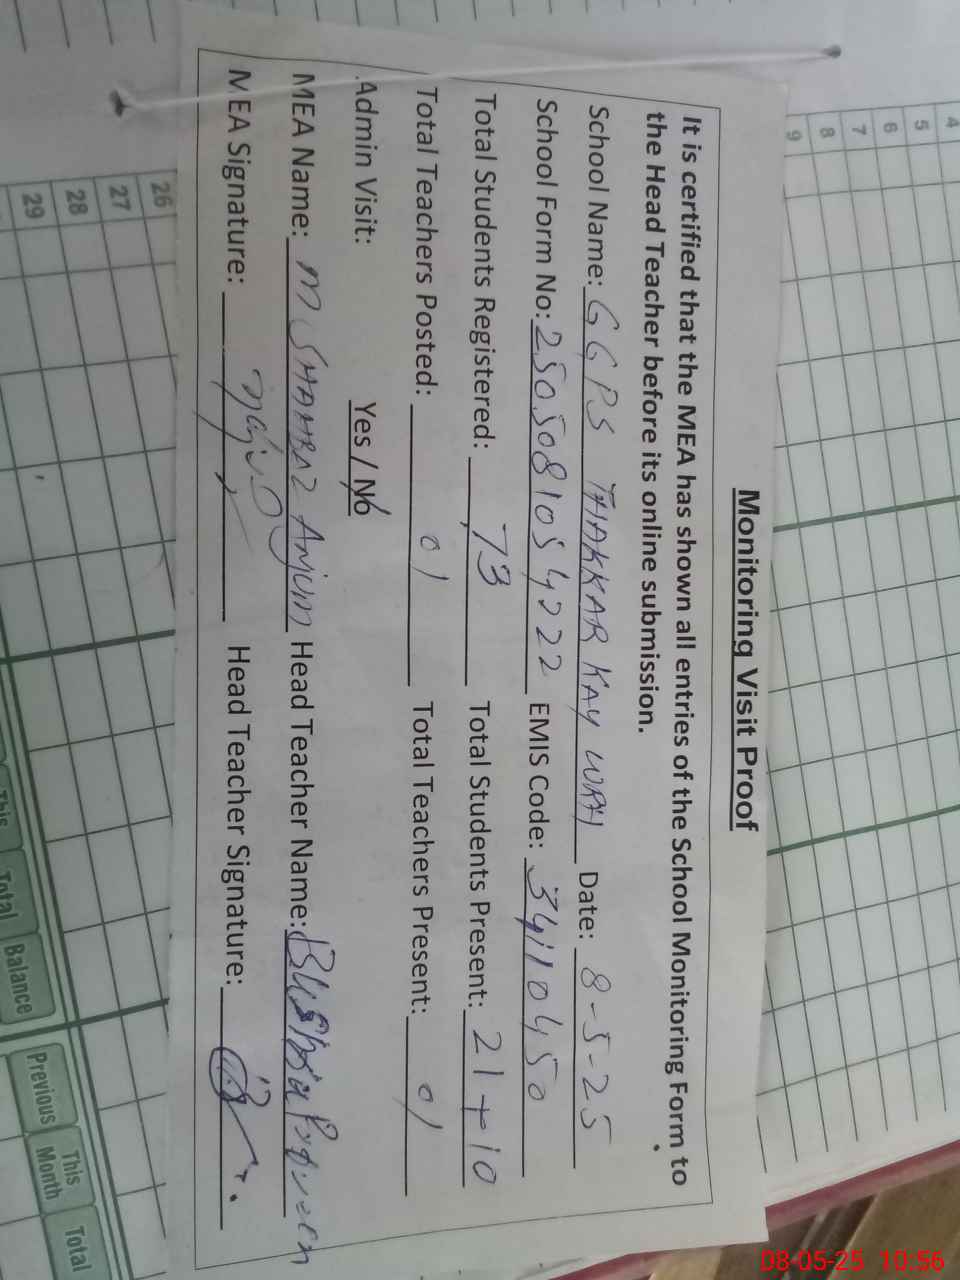 Monitoring Visit Proof
It is certified that the MEA has shown all entries of the School Monitoring Form to
the Head Teacher before its online submission.
School Name: GGPS THAKKAR KAY WAH Date: 8-5-25
School Form No: 2505081054222 EMIS Code: 34110450
Total Students Registered: 73 Total Students Present: 21+10
Total Teachers Posted: 01 Total Teachers Present: 01
Admin Visit: Yes / No
MEA Name: M SHAHBAZ ANJUM Head Teacher Name: Bushra Parveen
MEA Signature: Head Teacher Signature:
4
5
6
7
8
9
26
27
28
29
This
Total
Balance
Previous
This
Month
Total
08-05-25 10:56